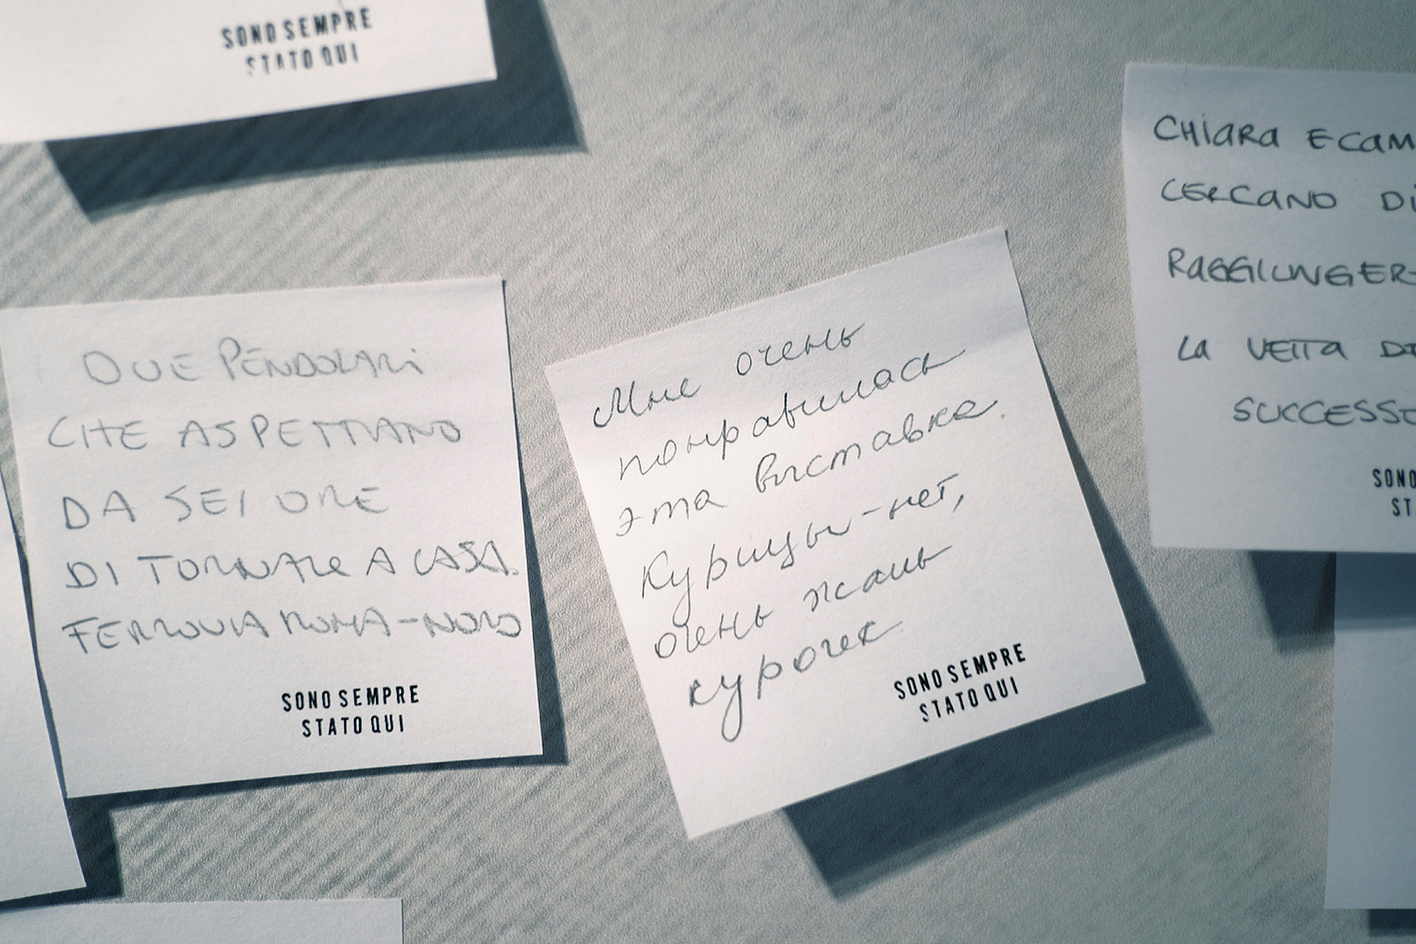 SONO SEMPRE
STATO QUI
DUE PENDOLARI
CHE ASPETTANO
DA SEI ORE
DI TORNARE A CASA.
FERROVIA ROMA-NORD
SONO SEMPRE
STATO QUI
Мне очень
понравилась
эта выставка.
Курицы-нет,
очень жаль
курочек.
SONO SEMPRE
STATO QUI
CHIARA E CAM
CERCANO DI
RAGGIUNGER
LA VETTA DE
SUCCESSO
SONO
ST